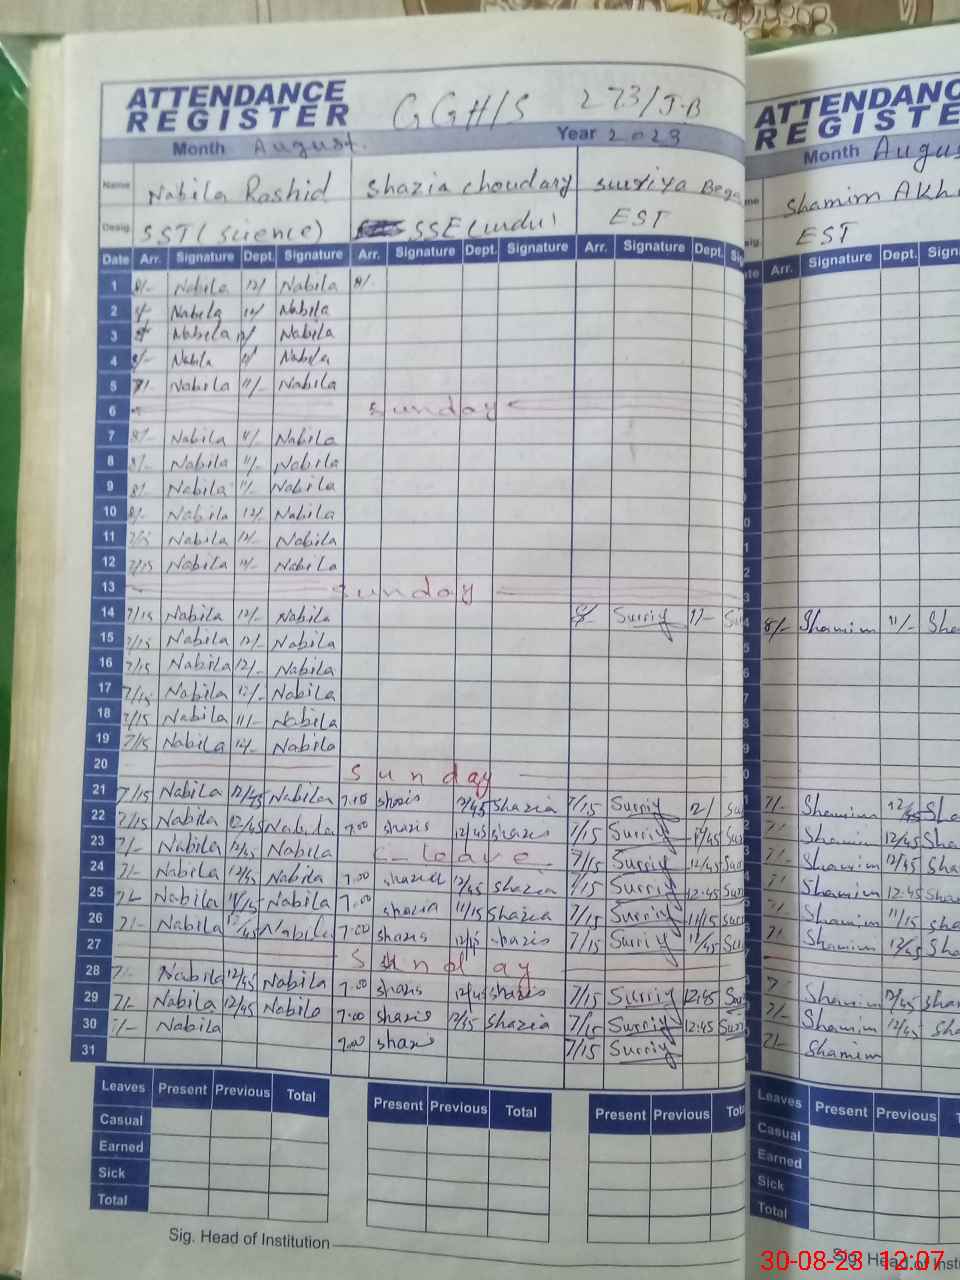 ATTENDANCE REGISTER GGH/S 273/J-B
Month August. Year 2023
Name Nabila Rashid Shazia Choudary Surriya Bega
Desig. SST (Science) SSE (urdu) EST
Date Arr. Signature Dept. Signature Arr. Signature Dept. Signature Arr. Signature Dept. Si
1 8/- Nabila 12/ Nabila 8/-
2 Nabila Nabila
3 Nabila Nabila
4 8/- Nabila Nabila
5 Nabila 11/- Nabila
6 Sunday
7 8/- Nabila 11/- Nabila
8 8/- Nabila 11/- Nabila
9 8/- Nabila 11/- Nabila
10 8/- Nabila 12/- Nabila
11 Nabila 12/- Nabila
12 7/15 Nabila 11/- Nabila
13 Sunday
14 7/15 Nabila 12/- Nabila 8/- Surriy 11/- Su
15 7/15 Nabila 12/- Nabila
16 7/15 Nabila 12/- Nabila
17 7/15 Nabila 12/- Nabila
18 7/15 Nabila 11/- Nabila
19 7/15 Nabila 12/- Nabila
20 Sunday
21 7/15 Nabila 12/45 Nabila shazia 12/45 Shazia 7/15 Surriy 12/ Su
22 7/15 Nabila 12/45 Nabila 7.00 shazia 12/45 shazia 7/15 Surriy 12/45 Su
23 7/- Nabila 12/45 Nabila C-leave 7/15 Surriy 12/45 Su
24 7/- Nabila 12/45 Nabila 7.00 shazia 12/45 shazia 7/15 Surriy 12:45 Su
25 7/- Nabila 11/15 Nabila 7.00 shazia 11/15 Shazia 7/15 Surriy 11/15 Su
26 7/- Nabila 12/45 Nabila 7.00 shazia shazia 7/15 Surriy 12/45 Su
27 Sunday
28 7/- Nabila 12/45 Nabila 7.00 shazia 12/45 shazia 7/15 Surriy 12:45 Su
29 7/- Nabila 12/45 Nabila 7.00 shazia 12/45 Shazia 7/15 Surriy 12:45 Su
30 7/- Nabila 7.00 shazia 7/15 Surriy
31
Leaves Present Previous Total Present Previous Total Present Previous Tot
Casual
Earned
Sick
Total
Sig. Head of Institution
ATTENDANC
REGISTE
Month Augus
me Shamim Akh
sig. EST
te Arr. Signature Dept. Sign
8/- Shamim 11/- Sha
7/- Shamim 12/45 Sha
7/- Shamim 12/45 Sha
7/- Shamim 12/45 Sha
7/- Shamim 12:45 Sham
7/- Shamim 11/15 sha
7/- Shamim 12/45 Sha
7/- Shamim 12/45 sham
7/- Shamim 12/45 sha
7/- Shamim
Leaves Present Previous
Casual
Earned
Sick
Total
Sig. Head of Insti
30-08-23 12:07